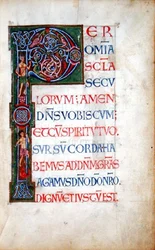 PER
OMIA
SCLA
SECU
LORUM AMEN
DNS VOBISCUM
ET CU SPIRITU TUO
SURSU CORDA HA
BEMUS AD DNM GRAS
AGAMUS DNO DO NRO
DIGNU ET IUSTU EST